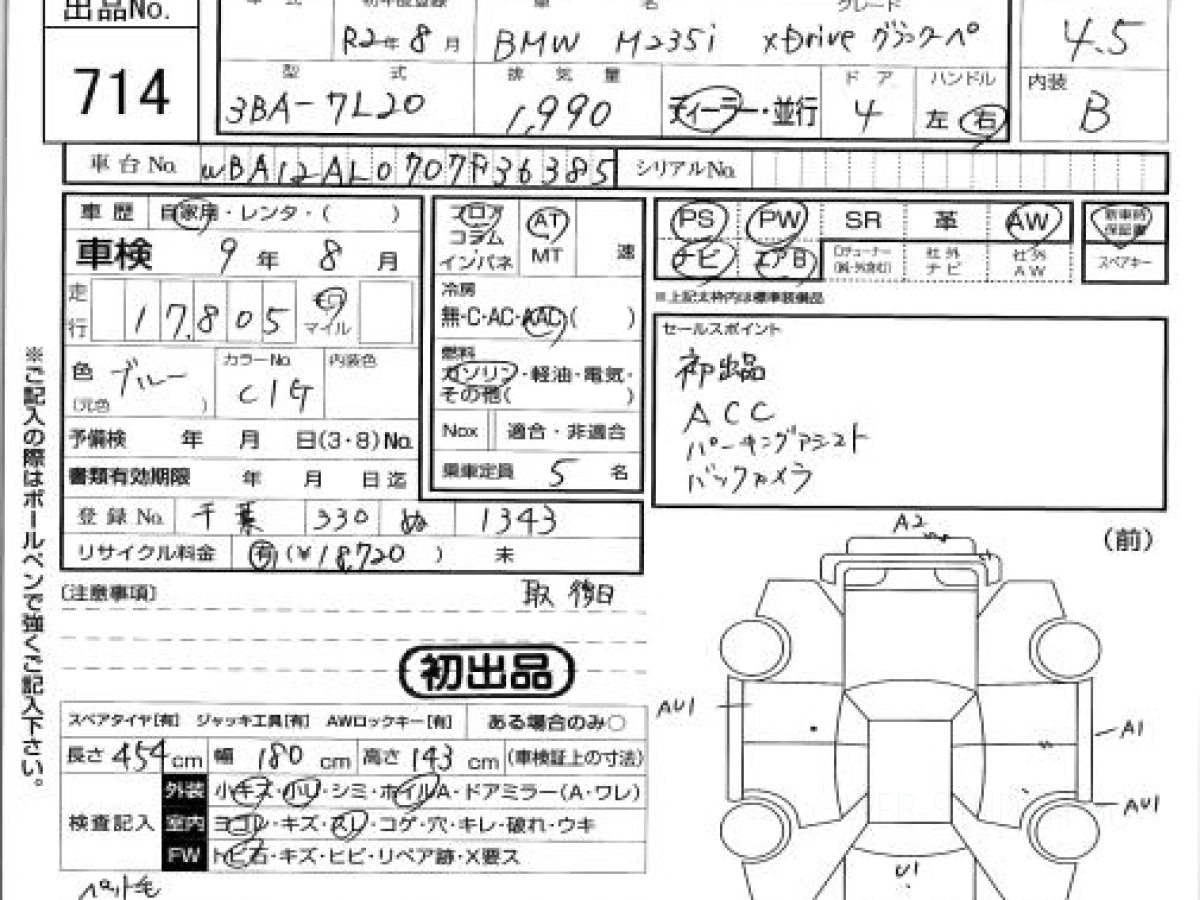 出品No. 714
R2年8月 BMW M235i xDrive グランクーペ 4.5
型式 排気量 ドア ハンドル 内装
3BA-7L20 1,990 ディーラー・並行 4 左 右 B
車台No. WBA12AL0707F36385 シリアルNo.
車歴 自家用・レンタ・( )
車検 9年 8月
走行 17,805 マイル
色 ブルー (元色 ) カラーNo. C1G 内装色
予備検 年 月 日(3・8)No.
書類有効期限 年 月 日迄
登録No. 千葉 330 ぬ 1343
リサイクル料金 有 (¥18,720 ) 未
フロア コラム・インパネ AT MT 速
冷房
無・C・AC・AAC( )
燃料
ガソリン・軽油・電気・
その他( )
Nox 適合・非適合
乗車定員 5 名
PS PW SR 革 AW 新車時保証書
ナビ エアB 社外ナビ 社外AW スペアキー
※上記太枠内は標準装備品
セールスポイント
初出品
ACC
パーキングアシスト
バックカメラ
※ご記入の際はボールペンで強くご記入下さい。
〔注意事項〕 取 後日
初出品
スペアタイヤ[有] ジャッキ工具[有] AWロックキー[有] ある場合のみ○
長さ 454cm 幅 180cm 高さ 143cm (車検証上の寸法)
検査記入
外装 小キズ・小U・シミ・ホイルA・ドアミラー(A・ワレ)
室内 ヨゴレ・キズ・スレ・コゲ・穴・キレ・破れ・ウキ
FW トビ石・キズ・ヒビ・リペア跡・X要ス
ペット毛
(前)
A2
AU1
A1
AU1
U1